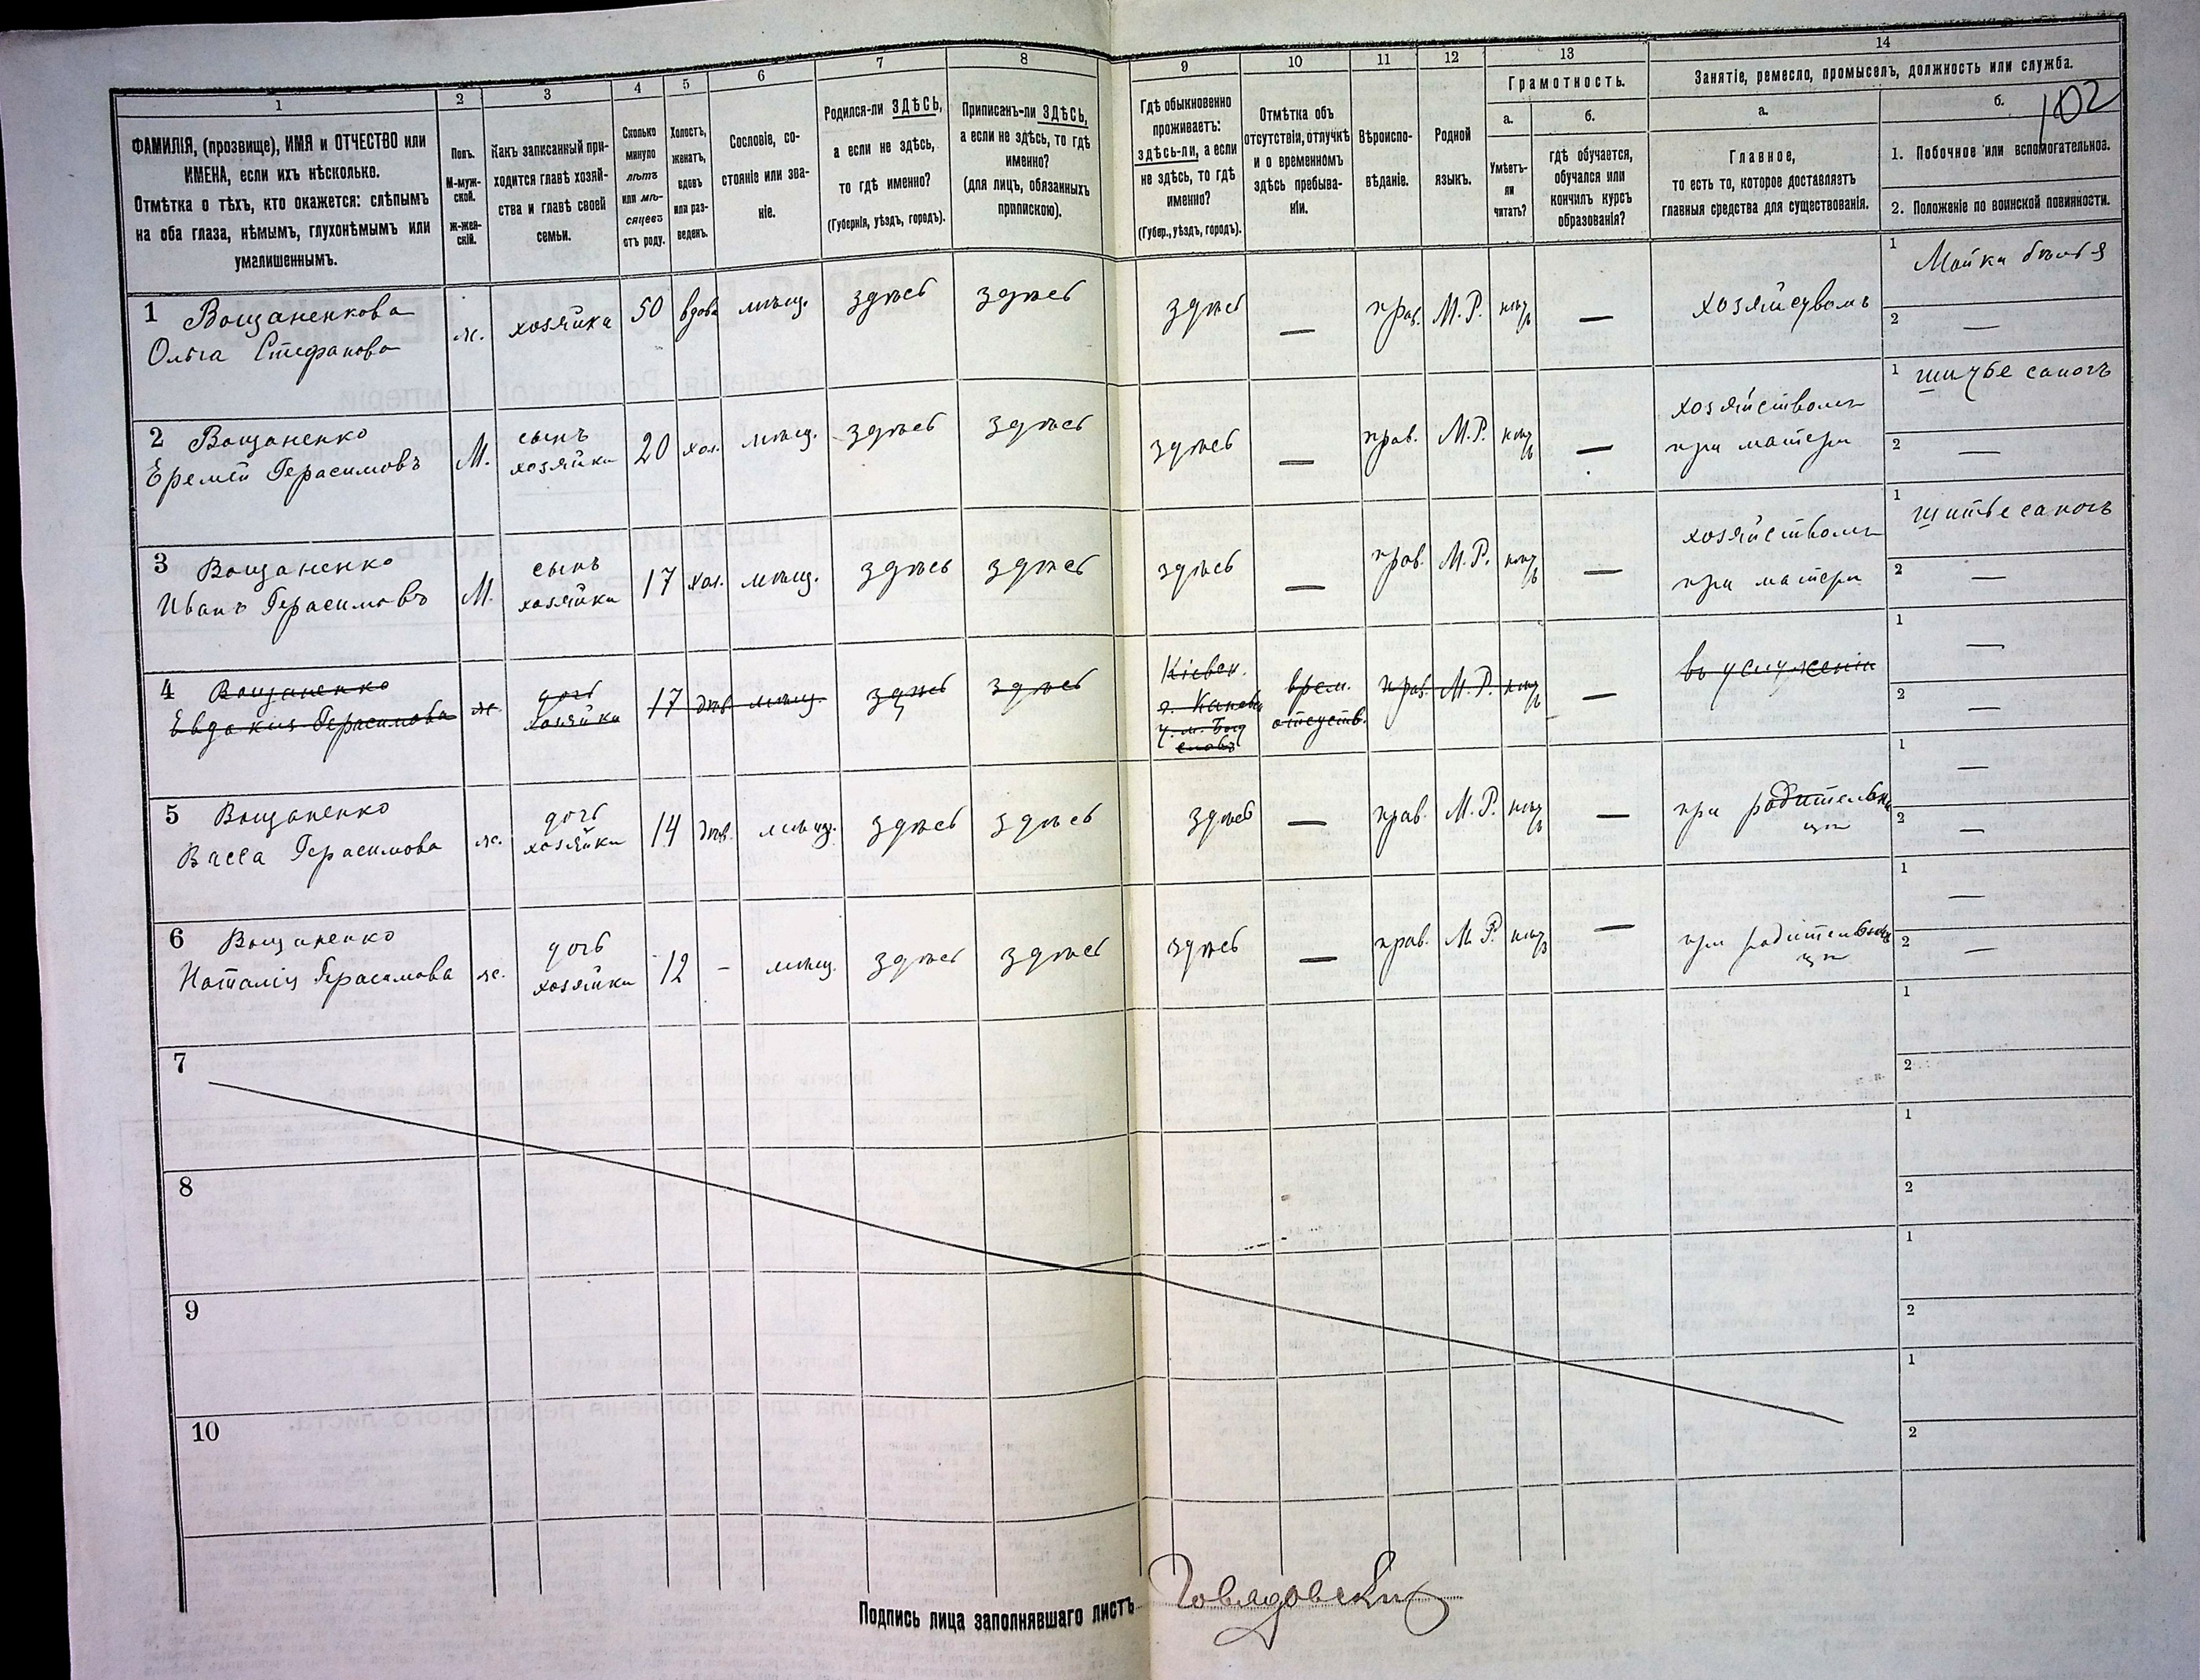 1 2 3 4 5 6 7 8 9 10 11 12 13 14
ФАМИЛІЯ, (прозвище), ИМЯ и ОТЧЕСТВО или
ИМЕНА, если ихъ нѣсколько.
Отмѣтка о тѣхъ, кто окажется: слѣпымъ
на оба глаза, нѣмымъ, глухонѣмымъ или
умалишеннымъ.
Полъ.
М-муж-
ской.
Ж-жен-
скій.
Какъ записанный при-
ходится главѣ хозяй-
ства и главѣ своей
семьи.
Сколько
минуло
лѣтъ
или мѣ-
сяцевъ
отъ роду.
Холостъ,
женатъ,
вдовъ
или раз-
веденъ.
Сословіе, со-
стояніе или зва-
ніе.
Родился-ли ЗДѢСЬ,
а если не здѣсь,
то гдѣ именно?
(Губернія, уѣздъ, городъ).
Приписанъ-ли ЗДѢСЬ,
а если не здѣсь, то гдѣ
именно?
(для лицъ, обязанныхъ
припискою).
Гдѣ обыкновенно
проживаетъ:
здѣсь-ли, а если
не здѣсь, то гдѣ
именно?
(Губер., уѣздъ, городъ).
Отмѣтка объ
отсутствіи, отлучкѣ
и о временномъ
здѣсь пребыва-
ніи.
Вѣроиспо-
вѣданіе.
Родной
языкъ.
Грамотность.
а.
Умѣетъ-
ли
читать?
б.
гдѣ обучается,
обучался или
кончилъ курсъ
образованія?
Занятіе, ремесло, промыселъ, должность или служба.
а.
Главное,
то есть то, которое доставляетъ
главныя средства для существованія.
б.
102
1. Побочное или вспомогательное.
2. Положеніе по воинской повинности.
1 Вощаненкова
Ольга Стефанова
ж. хозяйка 50 вдова мѣщ. здѣсь здѣсь здѣсь — прав. М.Р. нѣтъ — хозяйствомъ
1 Мойка бѣлья
2 —
2 Вощаненко
Еремѣй Герасимовъ
М. сынъ
хозяйки
20 хол. мѣщ. здѣсь здѣсь здѣсь — прав. М.Р. нѣтъ — хозяйствомъ
при матери
1 шитье сапогъ
2 —
3 Вощаненко
Иванъ Герасимовъ
М. сынъ
хозяйки
17 хол. мѣщ. здѣсь здѣсь здѣсь — прав. М.Р. нѣтъ — хозяйствомъ
при матери
1 шитье сапогъ
2 —
4 Вощаненко
Евдокія Герасимова
ж. дочь
хозяйки
17 дѣв. мѣщ. здѣсь здѣсь Кіевск.
г. Канев
у. м.
врем.
отсутств.
прав. М.Р. нѣтъ — въ услуженіи
1 —
2 —
5 Вощаненко
Васса Герасимова
ж. дочь
хозяйки
14 дѣв. мѣщ. здѣсь здѣсь здѣсь — прав. М.Р. нѣтъ — при родительни
цѣ
1 —
2 —
6 Вощаненко
Наталія Герасимова
ж. дочь
хозяйки
12 - мѣщ. здѣсь здѣсь здѣсь — прав. М.Р. нѣтъ — при родительни
цѣ
1 —
2 —
7
1
2
8
1
2
9
1
2
10
1
2
Подпись лица заполнявшаго листъ